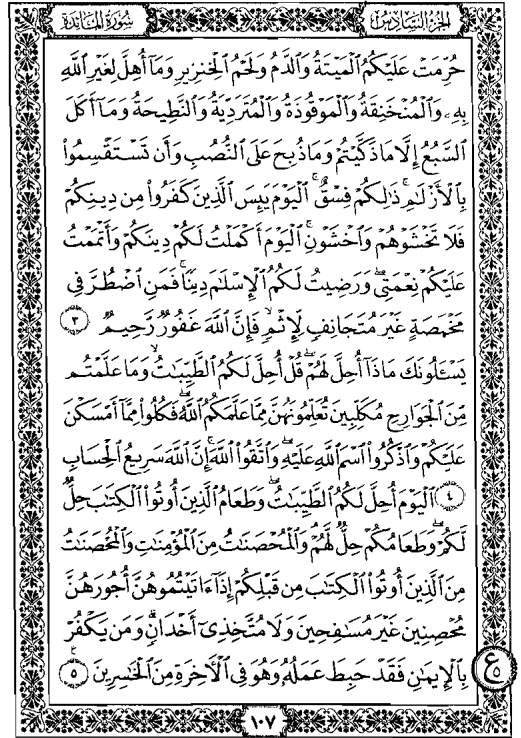 الجزء السادس
سورة المائدة
حُرِّمَتْ عَلَيْكُمُ ٱلْمَيْتَةُ وَٱلدَّمُ وَلَحْمُ ٱلْخِنزِيرِ وَمَآ أُهِلَّ لِغَيْرِ ٱللَّهِ
بِهِۦ وَٱلْمُنْخَنِقَةُ وَٱلْمَوْقُوذَةُ وَٱلْمُتَرَدِّيَةُ وَٱلنَّطِيحَةُ وَمَآ أَكَلَ
ٱلسَّبُعُ إِلَّا مَا ذَكَّيْتُمْ وَمَا ذُبِحَ عَلَى ٱلنُّصُبِ وَأَن تَسْتَقْسِمُوا۟
بِٱلْأَزْلَٰمِ ۚ ذَٰلِكُمْ فِسْقٌ ۗ ٱلْيَوْمَ يَئِسَ ٱلَّذِينَ كَفَرُوا۟ مِن دِينِكُمْ
فَلَا تَخْشَوْهُمْ وَٱخْشَوْنِ ۚ ٱلْيَوْمَ أَكْمَلْتُ لَكُمْ دِينَكُمْ وَأَتْمَمْتُ
عَلَيْكُمْ نِعْمَتِى وَرَضِيتُ لَكُمُ ٱلْإِسْلَٰمَ دِينًا ۚ فَمَنِ ٱضْطُرَّ فِى
مَخْمَصَةٍ غَيْرَ مُتَجَانِفٍ لِّإِثْمٍ ۙ فَإِنَّ ٱللَّهَ غَفُورٌ رَّحِيمٌ ٣
يَسْـَٔلُونَكَ مَاذَآ أُحِلَّ لَهُمْ ۖ قُلْ أُحِلَّ لَكُمُ ٱلطَّيِّبَٰتُ ۙ وَمَا عَلَّمْتُم
مِّنَ ٱلْجَوَارِحِ مُكَلِّبِينَ تُعَلِّمُونَهُنَّ مِمَّا عَلَّمَكُمُ ٱللَّهُ ۖ فَكُلُوا۟ مِمَّآ أَمْسَكْنَ
عَلَيْكُمْ وَٱذْكُرُوا۟ ٱسْمَ ٱللَّهِ عَلَيْهِ ۖ وَٱتَّقُوا۟ ٱللَّهَ ۚ إِنَّ ٱللَّهَ سَرِيعُ ٱلْحِسَابِ
٤ ٱلْيَوْمَ أُحِلَّ لَكُمُ ٱلطَّيِّبَٰتُ ۖ وَطَعَامُ ٱلَّذِينَ أُوتُوا۟ ٱلْكِتَٰبَ حِلٌّ
لَّكُمْ ۖ وَطَعَامُكُمْ حِلٌّ لَّهُمْ ۖ وَٱلْمُحْصَنَٰتُ مِنَ ٱلْمُؤْمِنَٰتِ وَٱلْمُحْصَنَٰتُ
مِنَ ٱلَّذِينَ أُوتُوا۟ ٱلْكِتَٰبَ مِن قَبْلِكُمْ إِذَآ ءَاتَيْتُمُوهُنَّ أُجُورَهُنَّ
مُحْصِنِينَ غَيْرَ مُسَٰفِحِينَ وَلَا مُتَّخِذِىٓ أَخْدَانٍ ۗ وَمَن يَكْفُرْ
بِٱلْإِيمَٰنِ فَقَدْ حَبِطَ عَمَلُهُۥ وَهُوَ فِى ٱلْءَاخِرَةِ مِنَ ٱلْخَٰسِرِينَ ٥
ع ٥
١٠٧